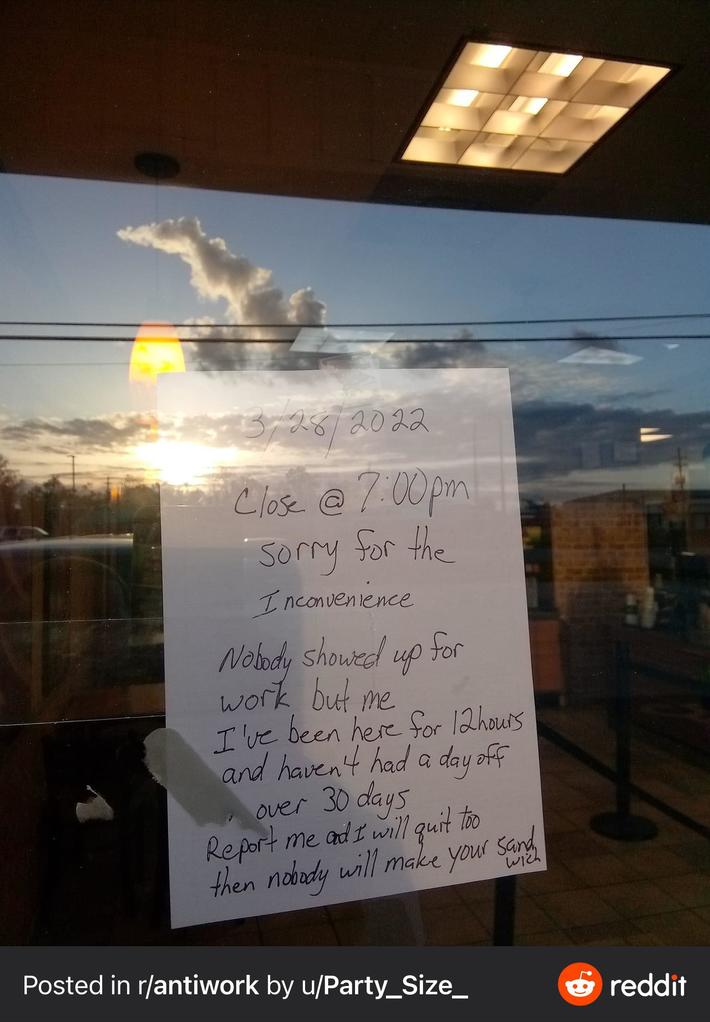 3/28/2022
Close @ 7:00pm
sorry for the
Inconvenience
Nobody showed up for
work but me
I've been here for 12hours
and haven't had a day off
over 30 days
Report me and I will quit too
then nobody will make your sandwich
Posted in r/antiwork by u/Party_Size_
reddit